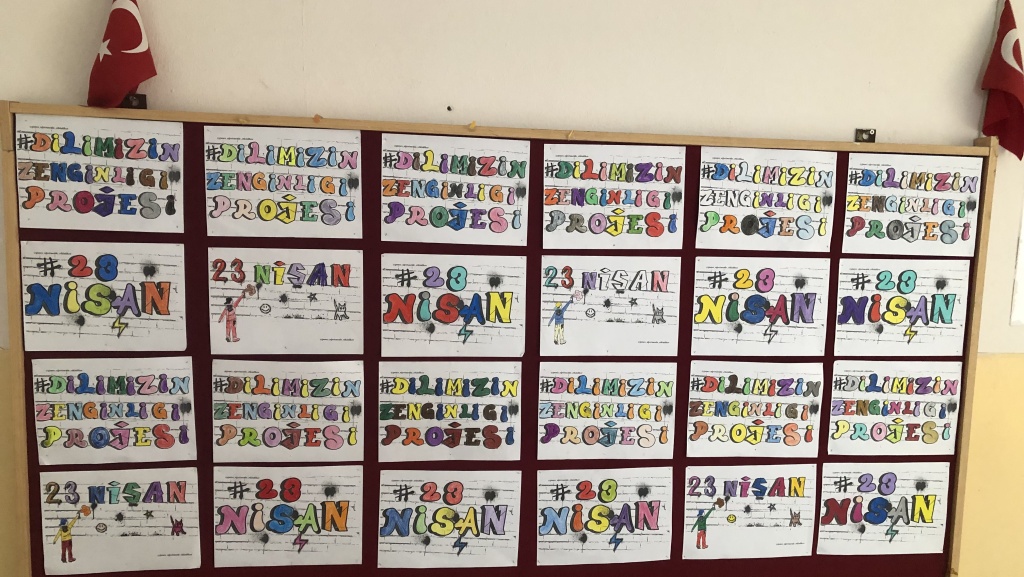 #DİLİMİZİN
ZENGİNLİGİ
PROJESİ
#DİLİMİZİN
ZENGİNLİGİ
PROJESİ
#DİLİMİZİN
ZENGİNLİGİ
PROJESİ
#DİLİMİZİN
ZENGİNLİGİ
PROJESİ
#DİLİMİZİN
ZENGİNLİGİ
PROJESİ
#DİLİMİZİN
ZENGİNLİGİ
PROJESİ
#23
NİSAN
23 NİSAN
#23
NİSAN
23 NİSAN
#23
NİSAN
#23
NİSAN
#DİLİMİZİN
ZENGİNLİGİ
PROJESİ
#DİLİMİZİN
ZENGİNLİGİ
PROJESİ
#DİLİMİZİN
ZENGİNLİGİ
PROJESİ
#DİLİMİZİN
ZENGİNLİGİ
PROJESİ
#DİLİMİZİN
ZENGİNLİGİ
PROJESİ
#DİLİMİZİN
ZENGİNLİGİ
PROJESİ
23 NİSAN
#23
NİSAN
#23
NİSAN
#23
NİSAN
23 NİSAN
#23
NİSAN